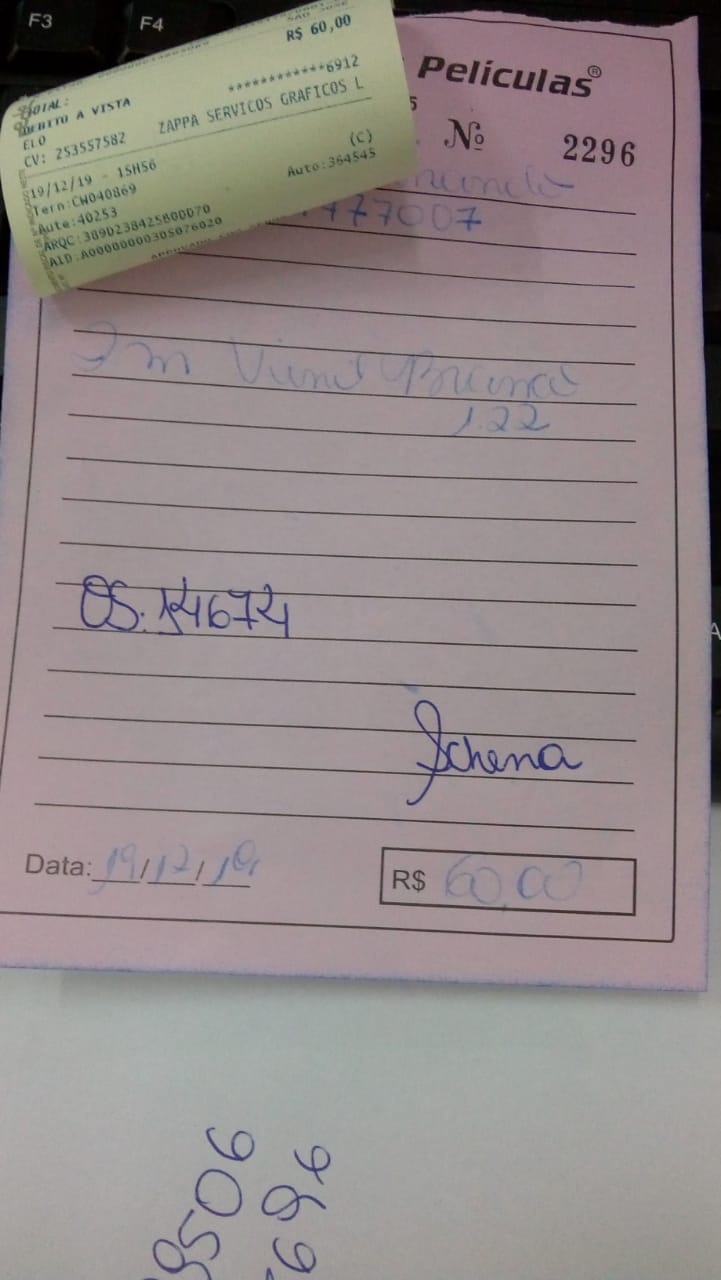 F3
F4
R$ 60,00
TOTAL:
DEBITO A VISTA
************6912
ELO
CV: 253557582 ZAPPA SERVICOS GRAFICOS L
19/12/19 - 15H56 (C)
Term:CW040869 Auto:364545
Aute:40253
ARQC:389D238425800D70
AID:A0000000305076020
Películas®
Nº 2296
477007
Im Vinil Branco
1.22
OS.14674
Schena
Data: 19/12/19
R$ 60,00
9506
696